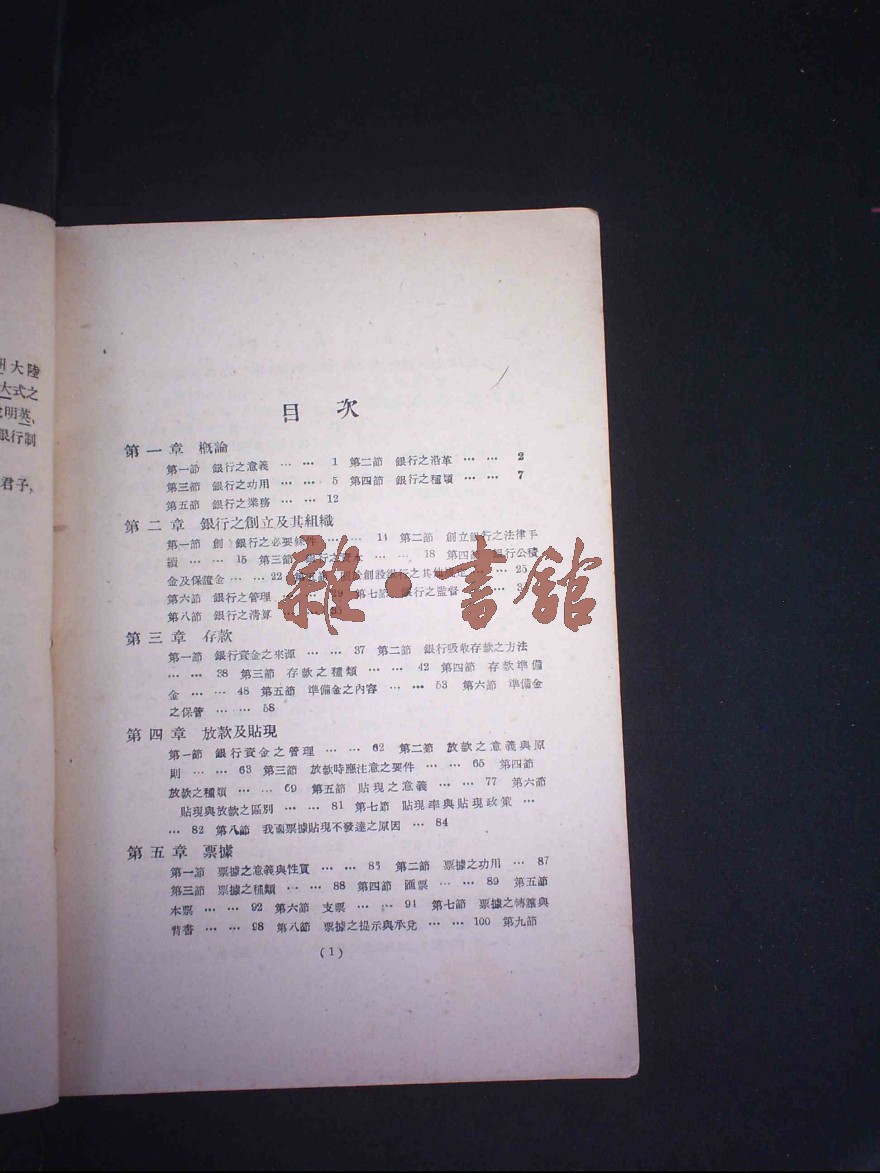 州大陸
大式之
明英、
銀行制
君子，
目 次
第一章 概論
第一節 銀行之意義 … … 1 第二節 銀行之沿革 … … 2
第三節 銀行之功用 … … 5 第四節 銀行之種類 … … 7
第五節 銀行之業務 … … 12
第二章 銀行之創立及其組織
第一節 創 銀行之必要條件 … … 14 第二節 創立銀行之法律手
續 … … 15 第三節 銀行之資本 … … 18 第四節 銀行公積
金及保證金 … … 22 第五節 關於創設銀行之其他規定 … 25
第六節 銀行之管理 … … 29 第七節 銀行之監督 …
第八節 銀行之清算 …
第三章 存款
第一節 銀行資金之來源 … … 37 第二節 銀行吸收存款之方法
… … 38 第三節 存款之種類 … … 42 第四節 存款準備
金 … … 48 第五節 準備金之內容 … … 53 第六節 準備金
之保管 … … 58
第四章 放款及貼現
第一節 銀行資金之管理 … … 62 第二節 放款之意義與原
則 … … 63 第三節 放款時應注意之要件 … … 65 第四節
放款之種類 … … 69 第五節 貼現之意義 … … 77 第六節
貼現與放款之區別 … … 81 第七節 貼現率與貼現政策 …
… 82 第八節 我國票據貼現不發達之原因 … 84
第五章 票據
第一節 票據之意義與性質 … … 85 第二節 票據之功用 … 87
第三節 票據之種類 … … 88 第四節 匯票 … … 89 第五節
本票 … … 92 第六節 支票 … … 94 第七節 票據之轉讓與
背書 … … 98 第八節 票據之提示與承兌 … … 100 第九節
(1)
雜·書館